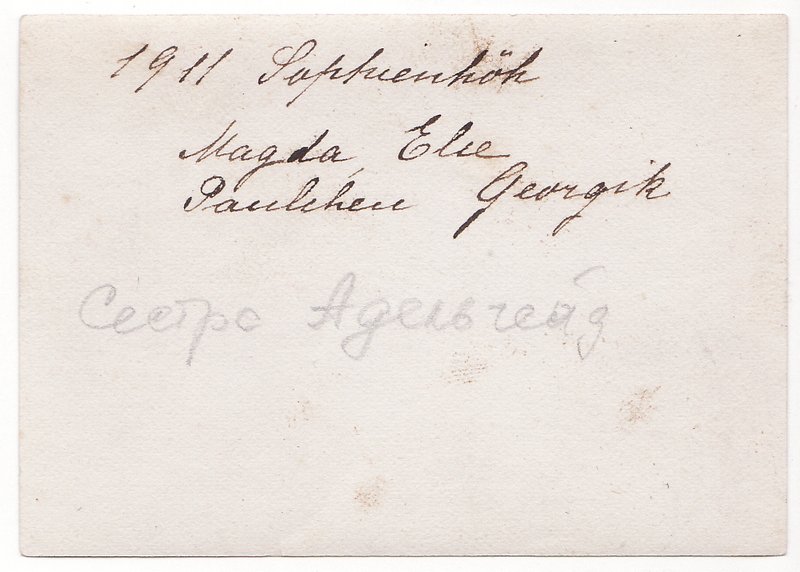 1911 Sophienhöh
Magda, Else
Paulchen Georgik
Сестра Адельгейд